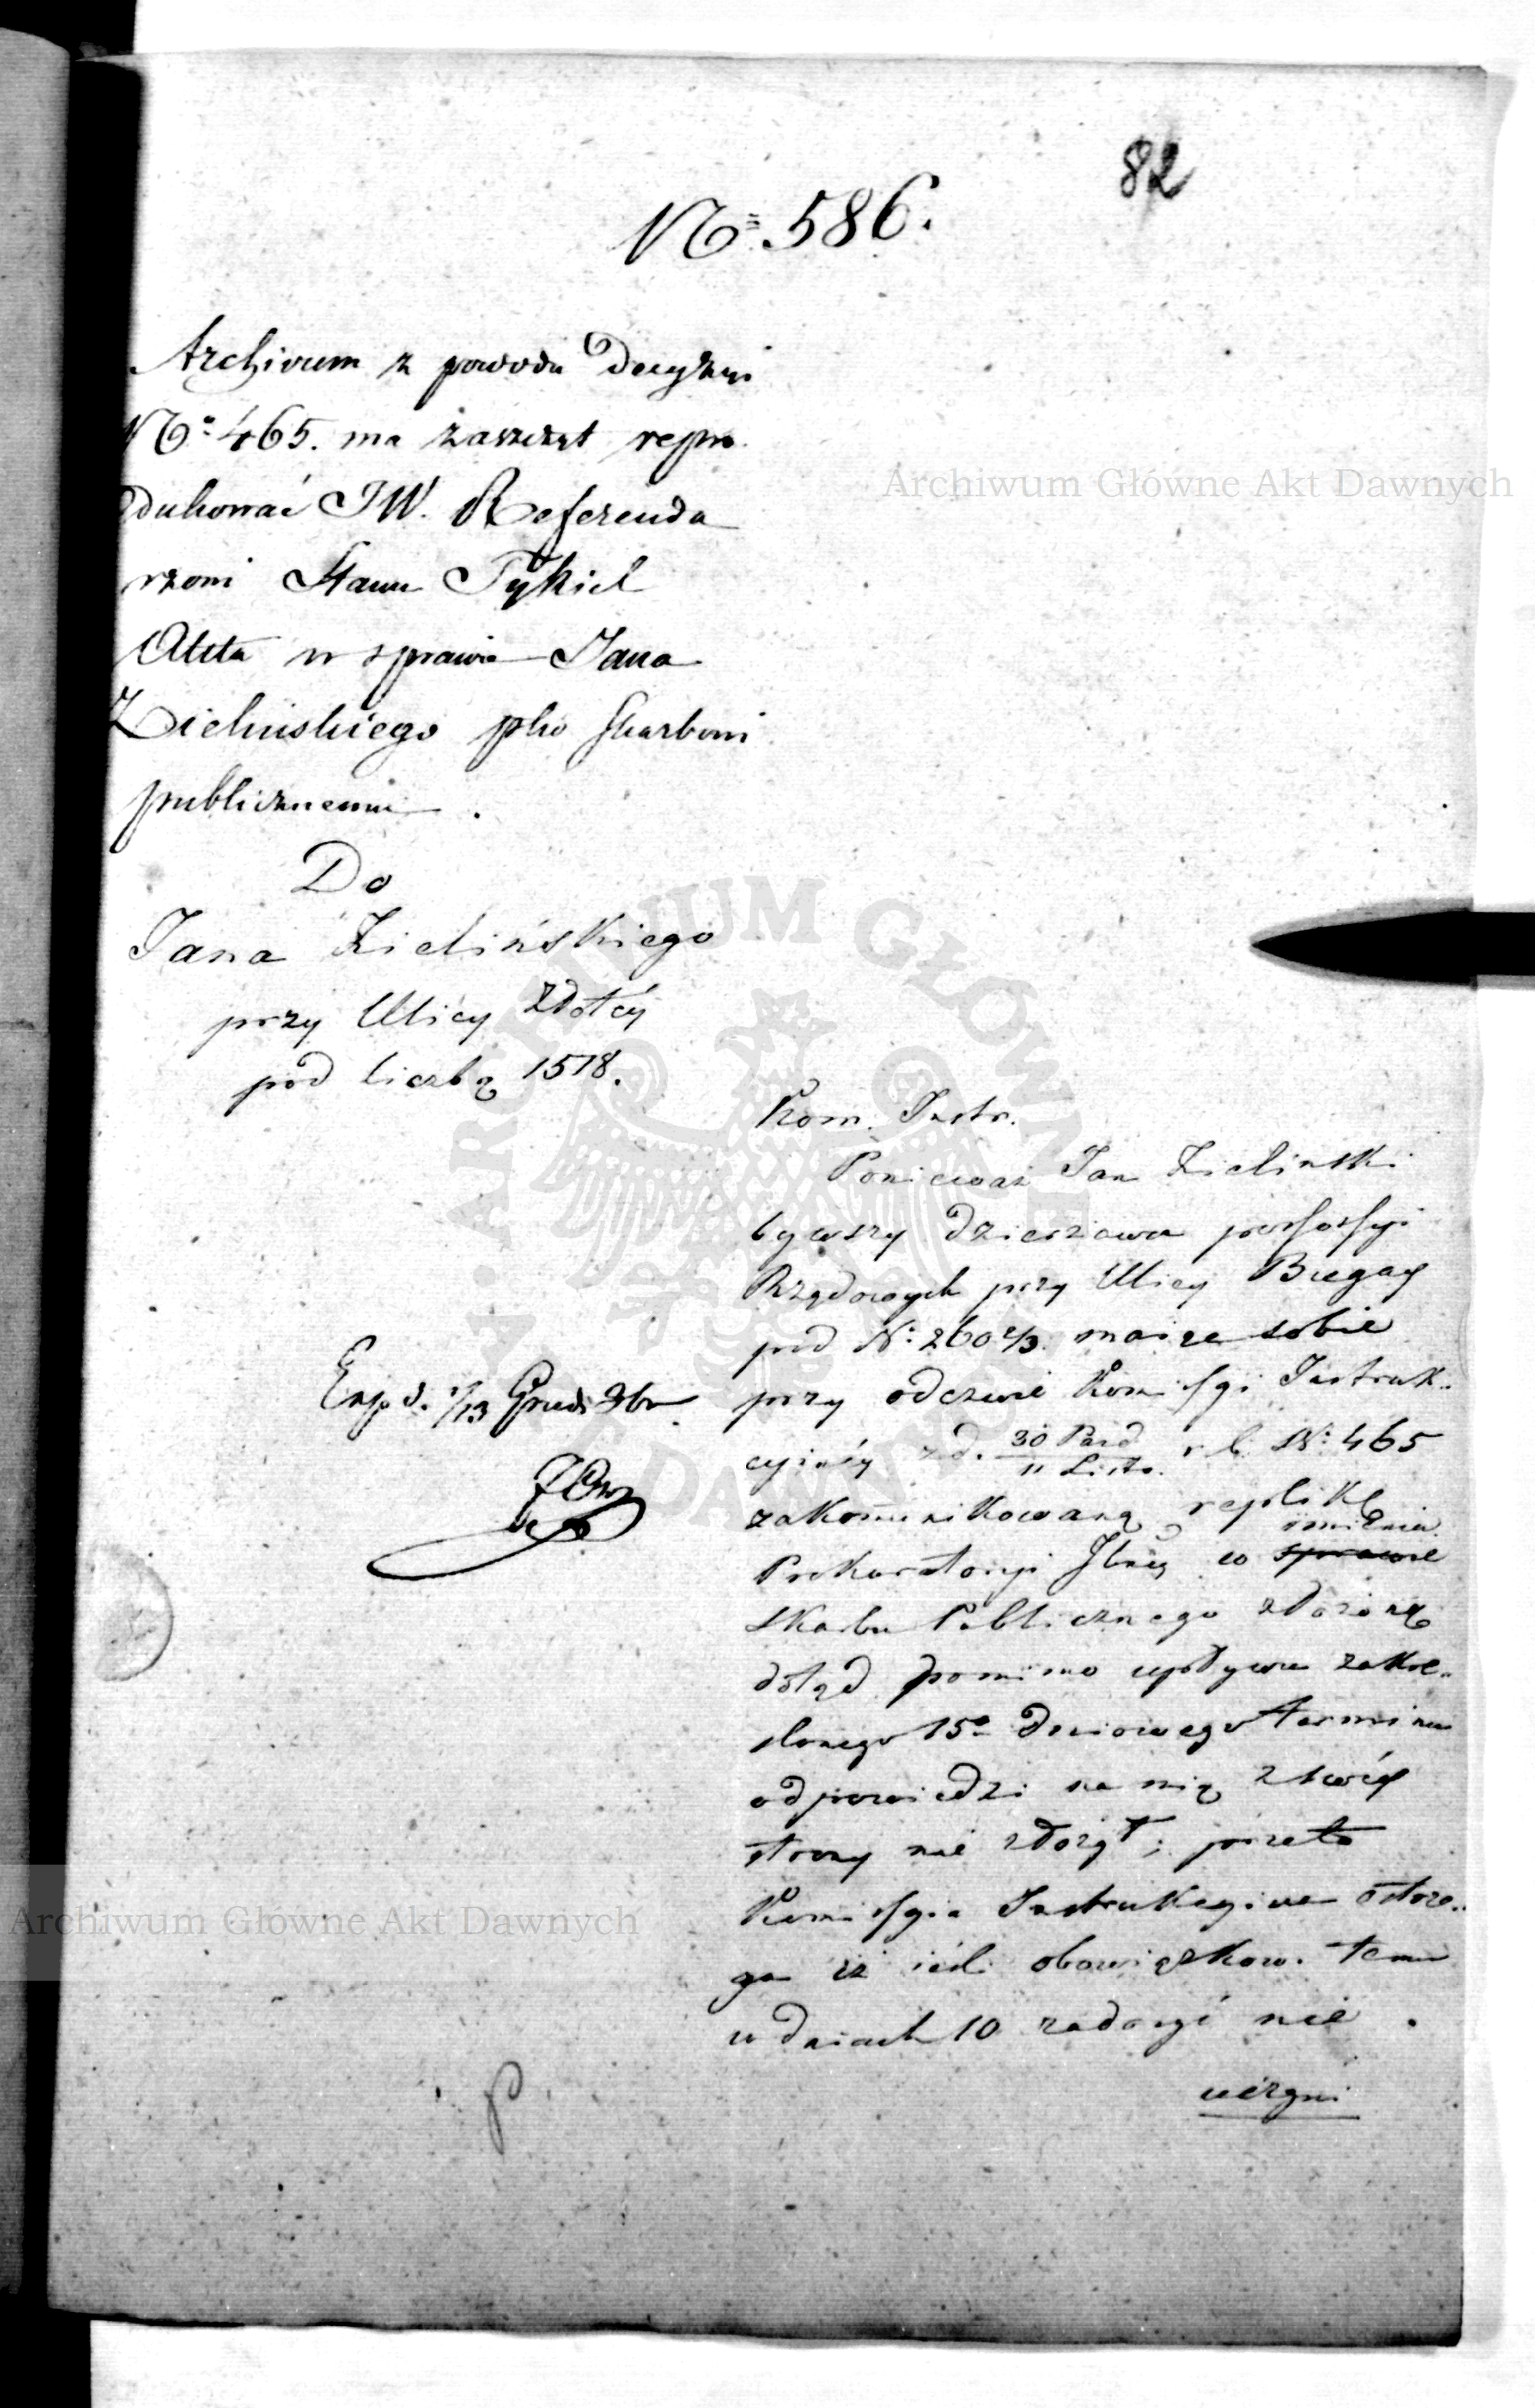 82
No 586.
Archivum z powodu Decyzyi
No 465. ma zaszczyt repro
dukować JW. Referenda
rzowi Stanu Tykiel
Akta w sprawie Jana
Zielińskiego pko Skarbowi
publicznemu.
Do
Jana Zielińskiego
przy Ulicy Złotéy
pod liczbą 1518.
Kom. Instr.
Ponieważ Jan Zielinski
bywszy dzierżawca possessyi
Rządowych przy Ulicy Bugay
pod No 260 2/3. maiąc sobie
przy odezwie Komissyi Instruk-
cyinéy z d. 30 Paźd / 11 Listo. r. b. No 465
zakomunikowaną replikę
Prokuratoryi Jlnéy w sprawie imieniu
Skarbu Publicznego złożoną
dotąd pomimo upływu zakre-
slonego 15o dniowego terminu
odpowiedzi na nią z swéy
strony nie złożył; przeto
Komissyia Instrukcyina ostrze-
ga iż iéśli obowiązkow. temu
w dniach 10 zadosyć nie
uczyni
Exp. d. 1/13 Grud. 36 r.
Archiwum Główne Akt Dawnych
Archiwum Główne Akt Dawnych
ARCHIWUM GŁÓWNE AKT DAWNYCH